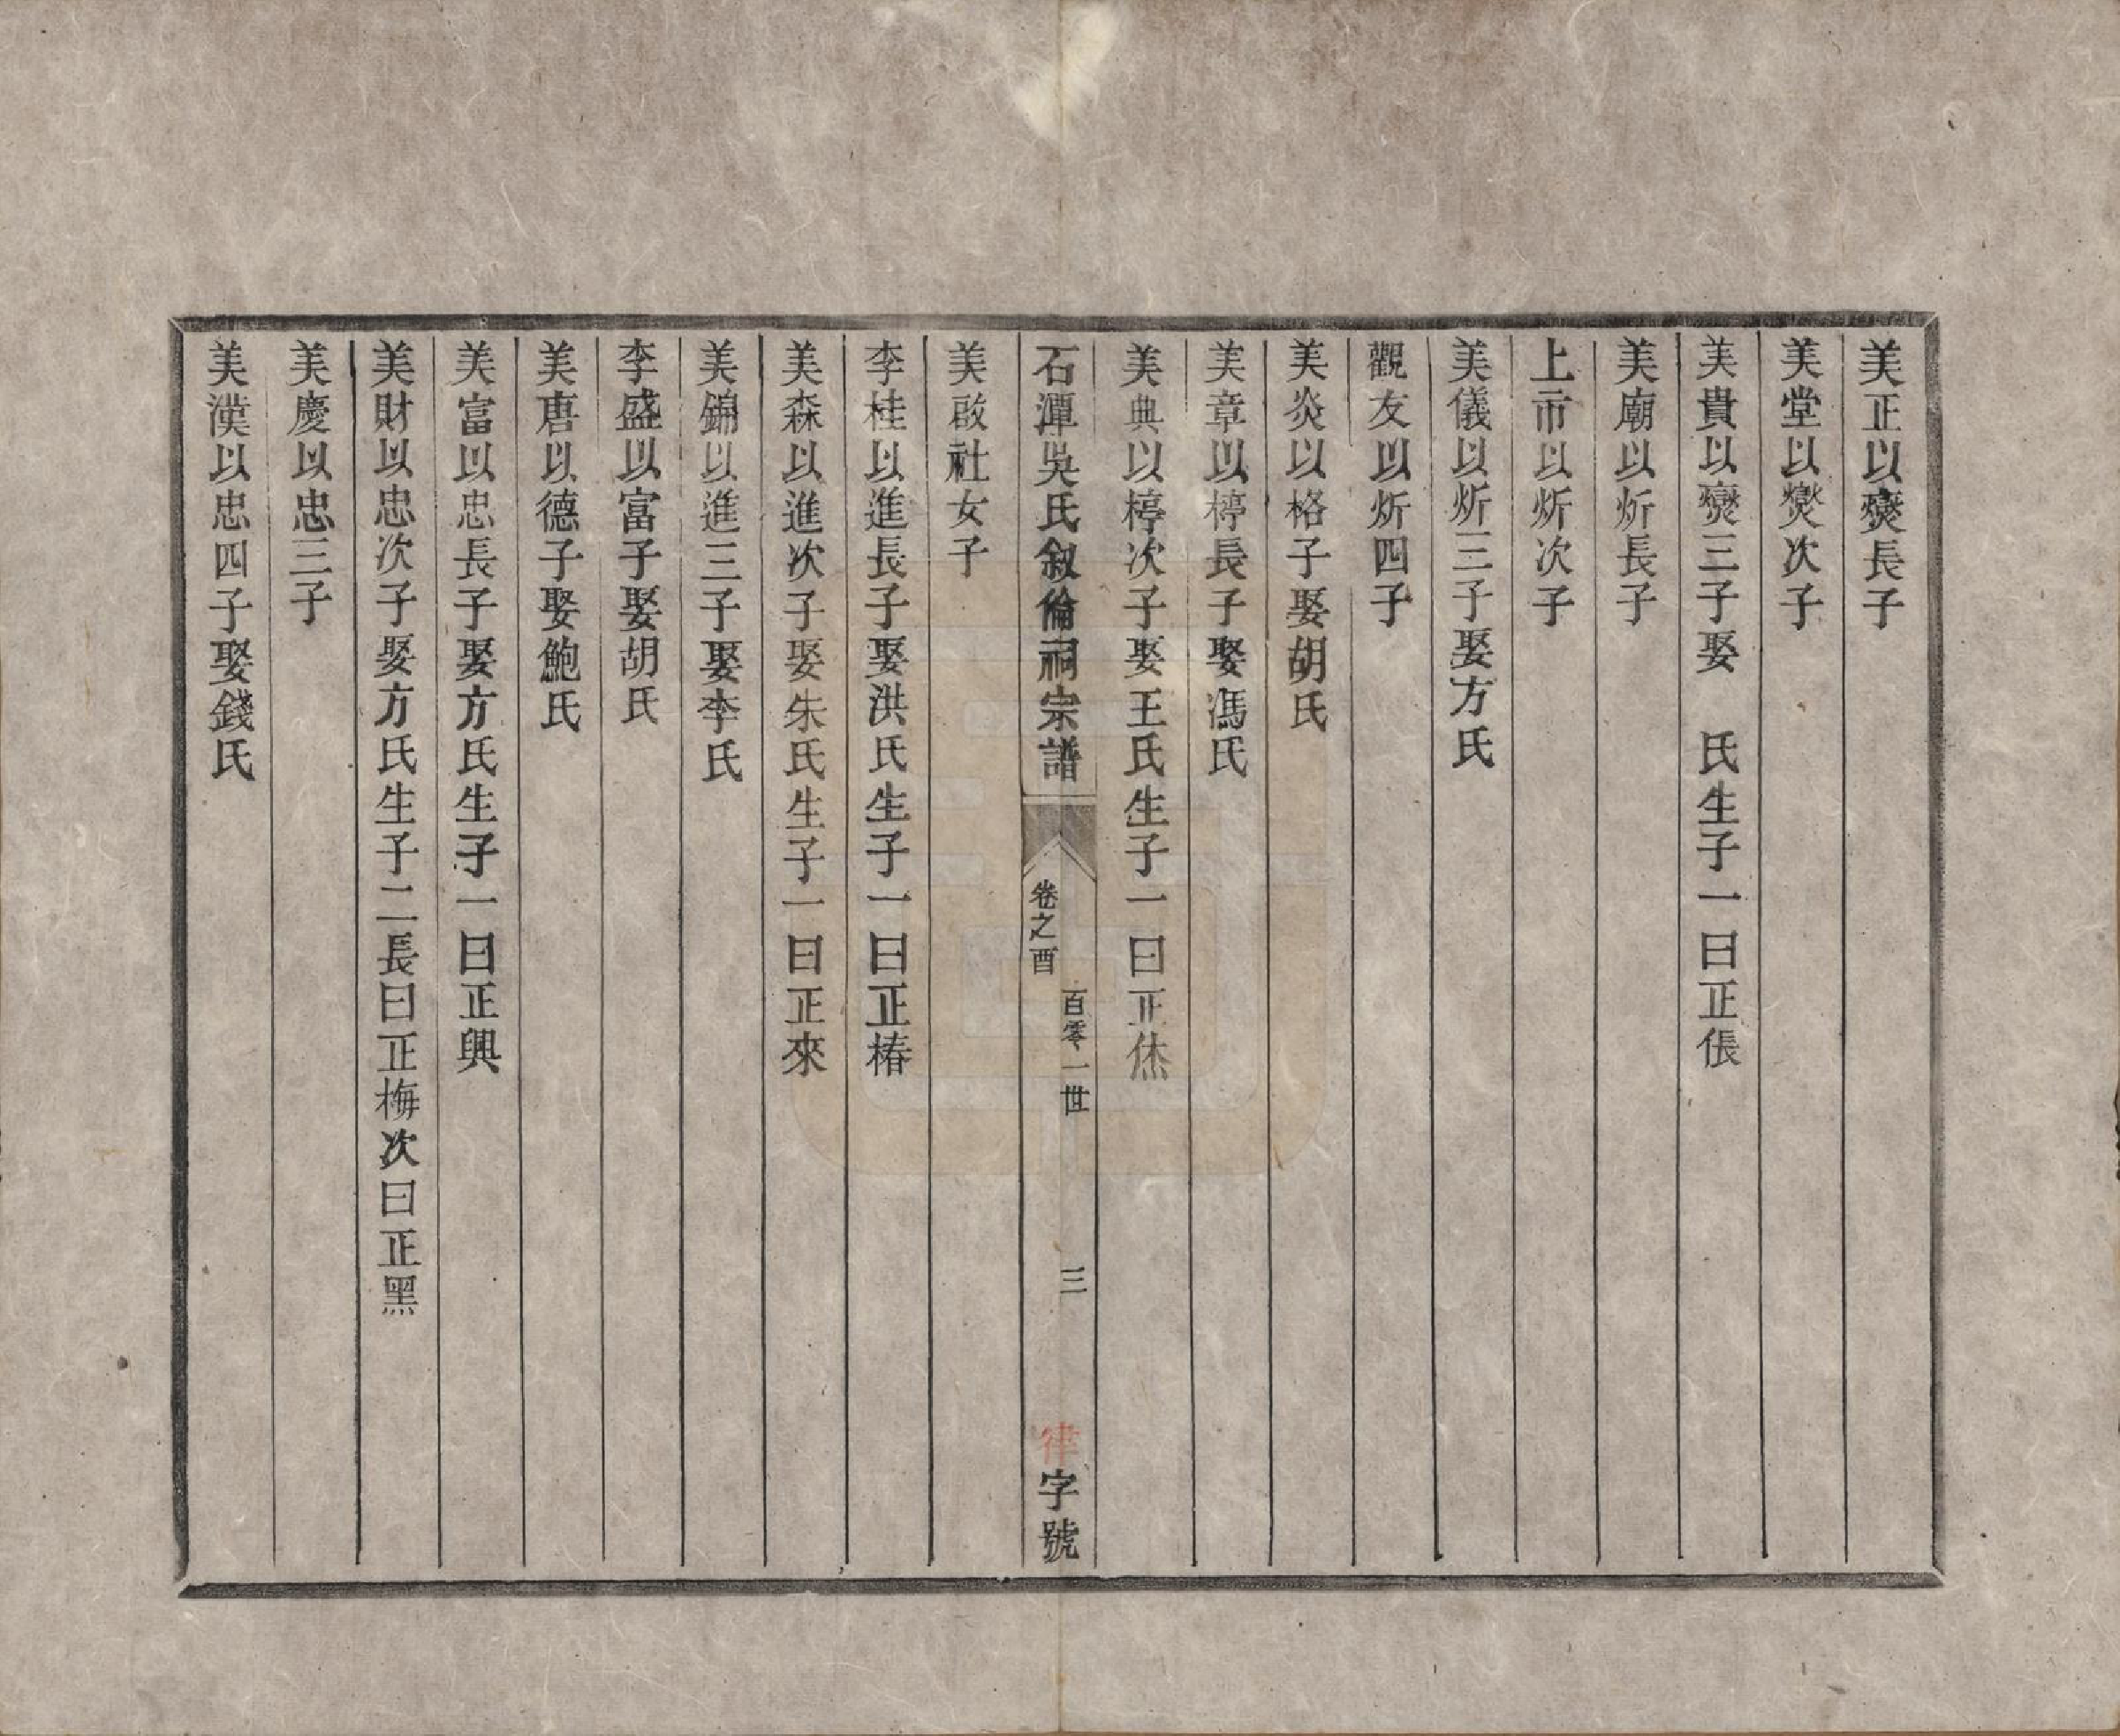 美正以燮長子
美堂以燮次子
美貴以燮三子娶　氏生子一曰正倀
美廟以炘長子
上市以炘次子
美儀以炘三子娶方氏
觀友以炘四子
美炎以格子娶胡氏
美章以楟長子娶馮氏
美典以楟次子娶王氏生子一曰正烋
石潭吳氏敘倫祠宗譜
卷之酉
百零一世
三
律字號
美啟社女子
李桂以進長子娶洪氏生子一曰正椿
美森以進次子娶朱氏生子一曰正來
美錦以進三子娶李氏
李盛以富子娶胡氏
美唐以德子娶鮑氏
美富以忠長子娶方氏生子一曰正興
美財以忠次子娶方氏生子二長曰正梅次曰正黑
美慶以忠三子
美漢以忠四子娶錢氏